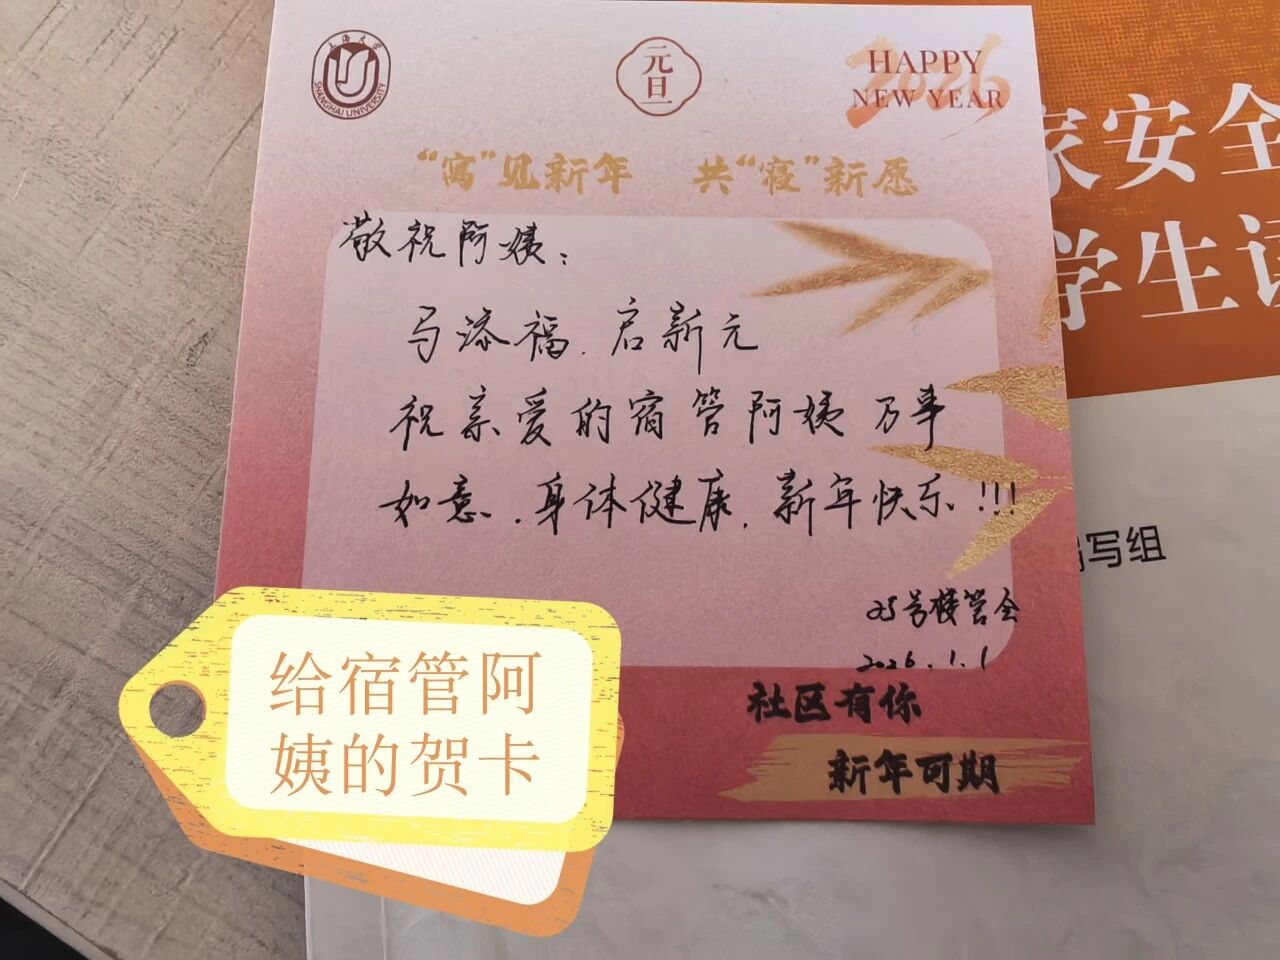 上海大学
SHANGHAI UNIVERSITY
元旦
2026
HAPPY
NEW YEAR
“寓”见新年 共“寝”新愿
敬祝阿姨：
马添福．启新元
祝亲爱的宿管阿姨万事
如意．身体健康．新年快乐!!!
25号楼管会
2026.1.1
社区有你
新年可期
家安全
学生读
编写组
给宿管阿
姨的贺卡